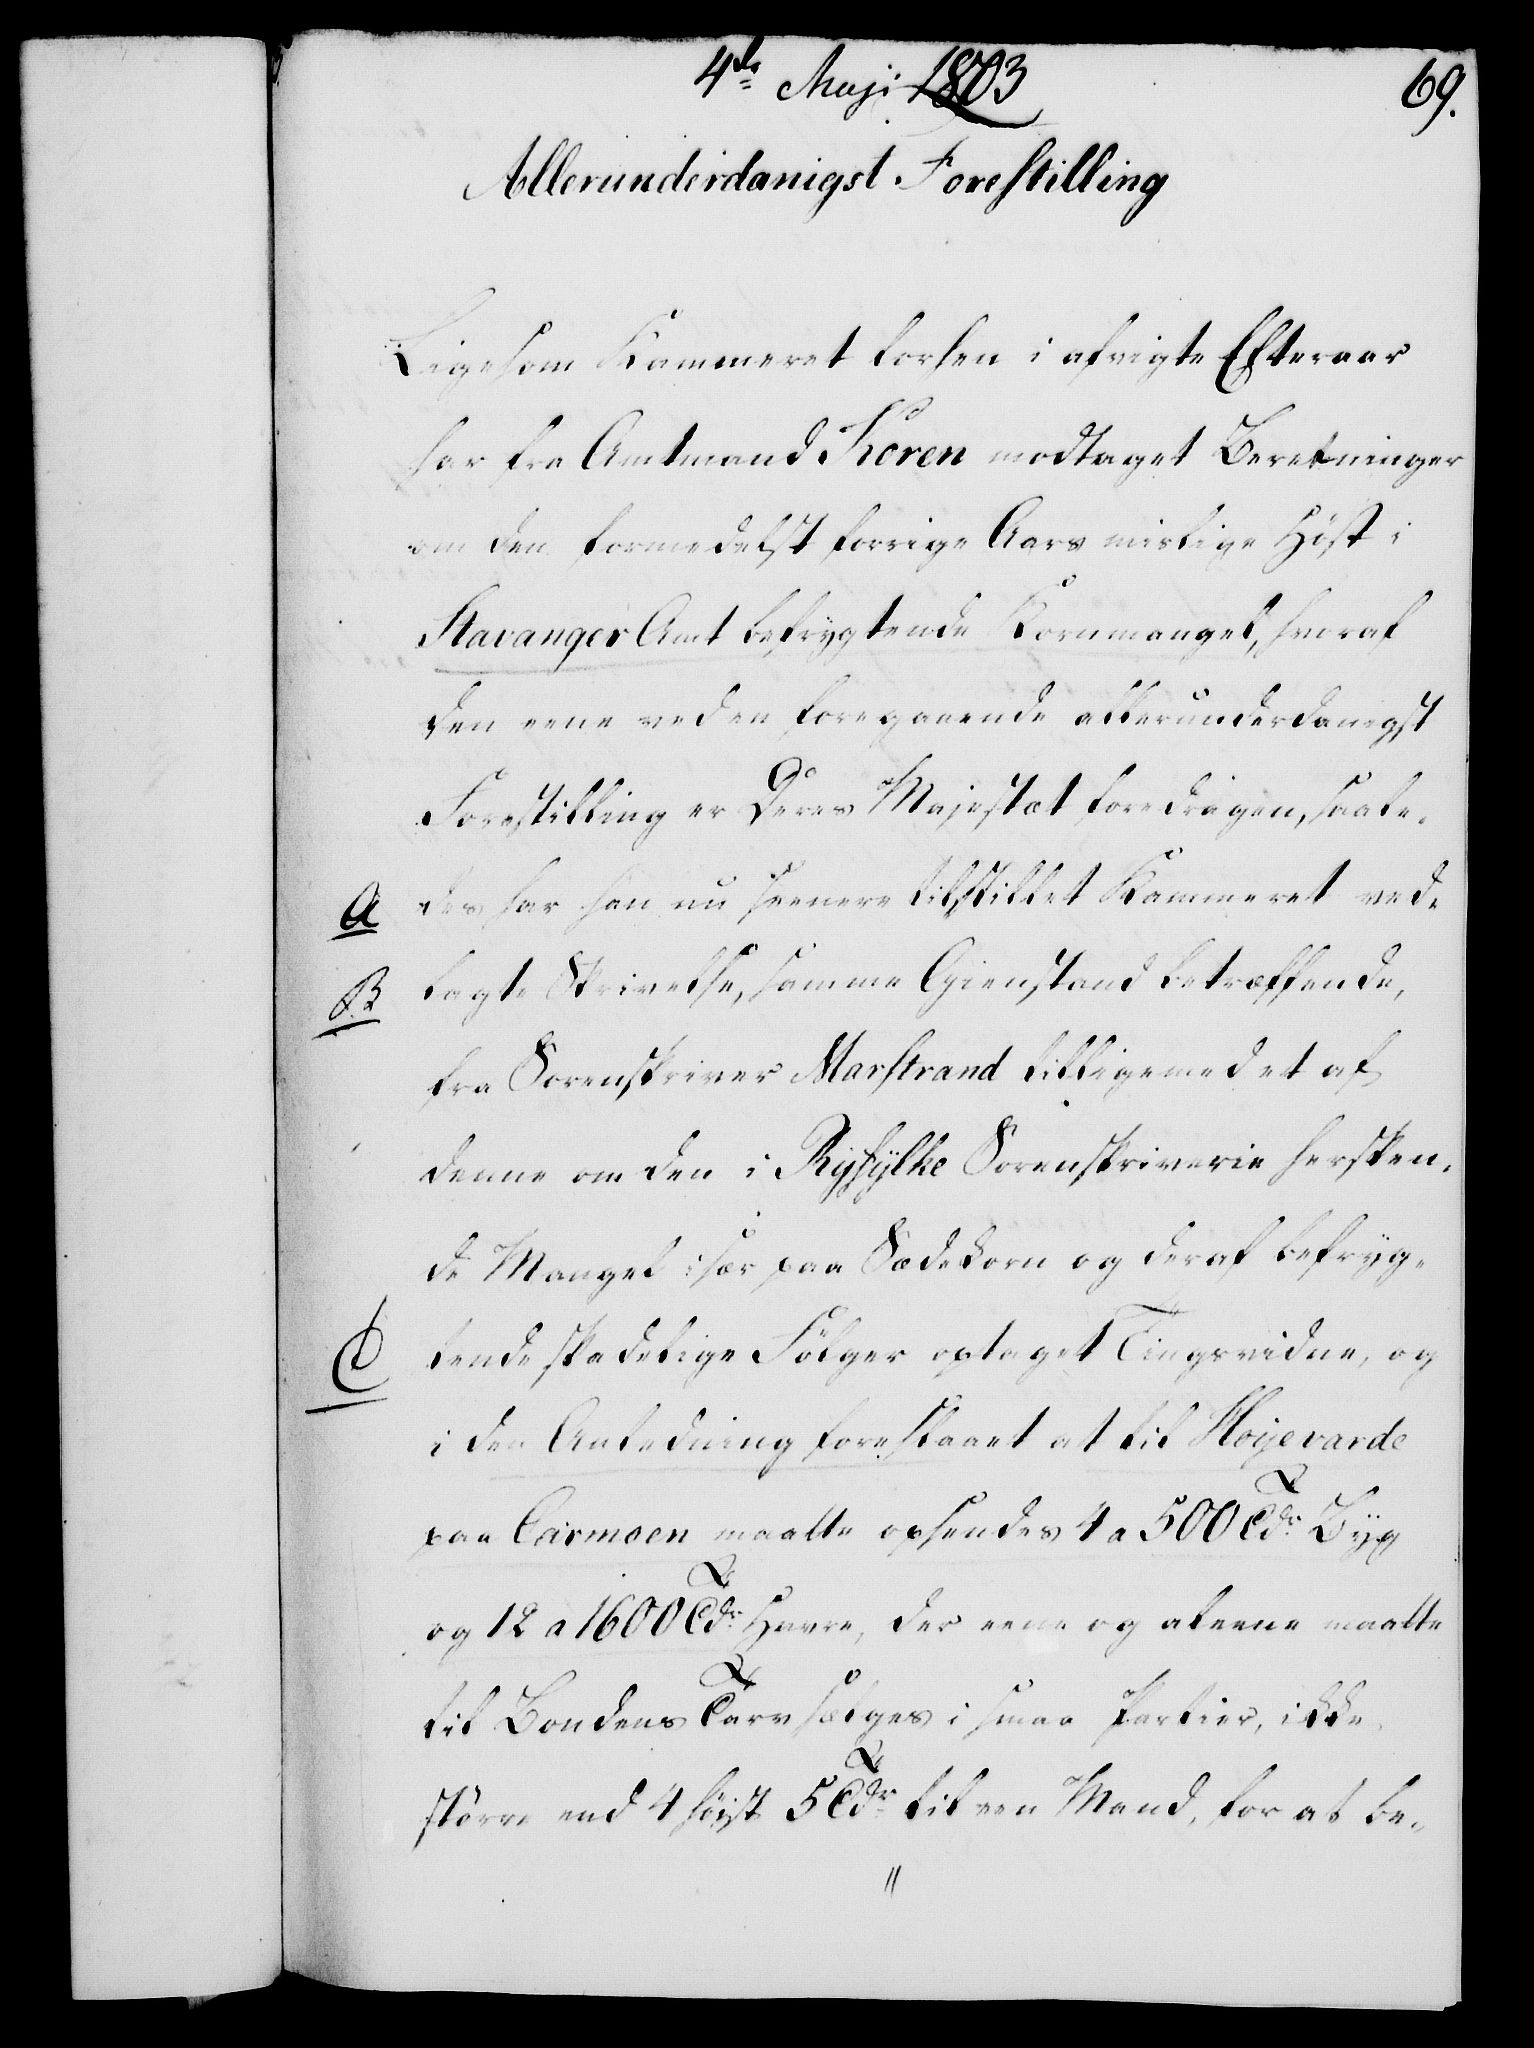 4de Maji 1803
69.
Allerunderdanigst Forestilling
Ligesom Kammeret forhen i afvigte Efteraar
har fra Amtmand Koren modtaget Beretninger
om den formedelst forrige Aars mislige Höst i
Stavanger Amt befrygtende Kornmangel, hvoraf
den eene ved en foregaaende allerunderdanigst
Forestilling er Deres Majestæt foredragen, saale-
A des har han nu seenere tilstillet Kammeret ved-
B lagte Skrivelse, samme Gienstand betræffende,
fra Sorenskriver Marstrand tilligemed et af
denne om den i Ryfylke Sorenskriverie hersken-
de Mangel især paa Sædekorn og deraf befryg-
C tende skadelige Fölger optaget Tingsvidne, og
i den Anledning foreslaaet at til Höijevarde
paa Carmoen maatte opsendes 4 a 500 Tdr Byg
og 12 a 1600 Tdr Havre, der eene og aleene maatte
til Bondens Tarv sælges i smaa Partier, ikke
större end 4 höist 5 Tdr til een Mand, for at be-